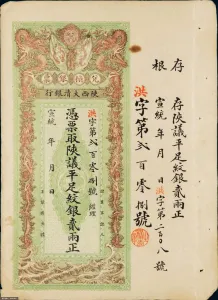 存根
存陝議平足紋銀貳兩正
宣統 年 月 日洪字第二百〇八號
洪字第貳百零捌號
陝西大清銀行
洪字第貳百零捌號 經理
憑票取陝議平足紋銀貳兩正
宣統 年 月 日